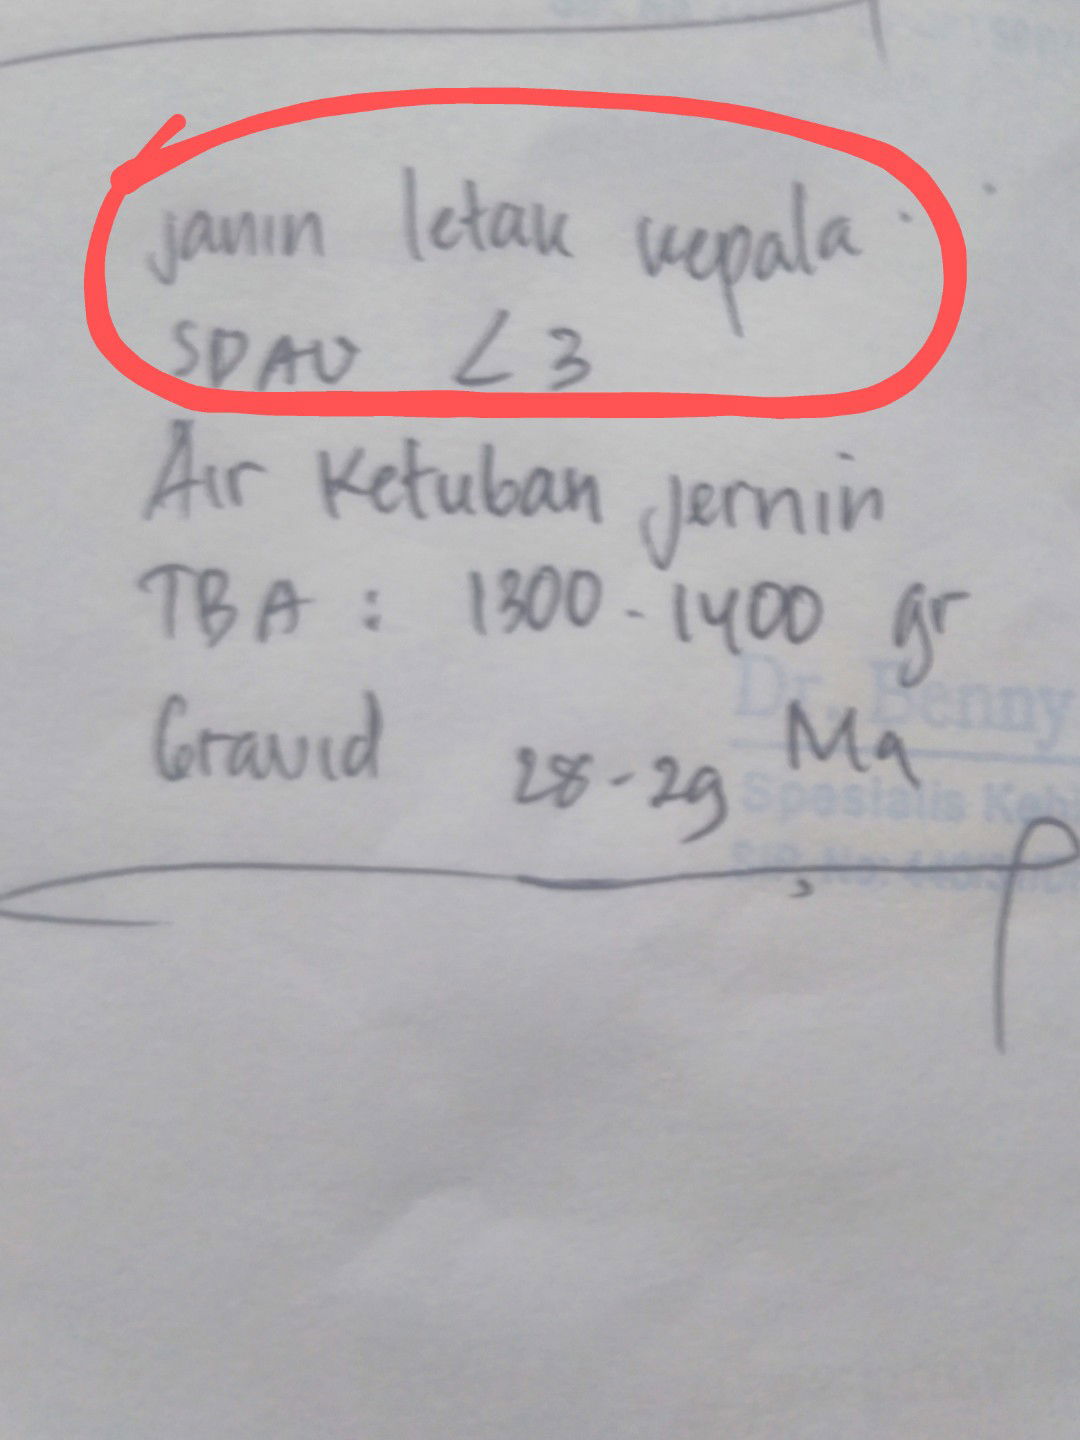 janin letak kepala
SDAU < 3
Air Ketuban jernih
TBA : 1300 - 1400 gr
Gravid 28 - 29 Mg
Dr. Benny
Spesialis Keb